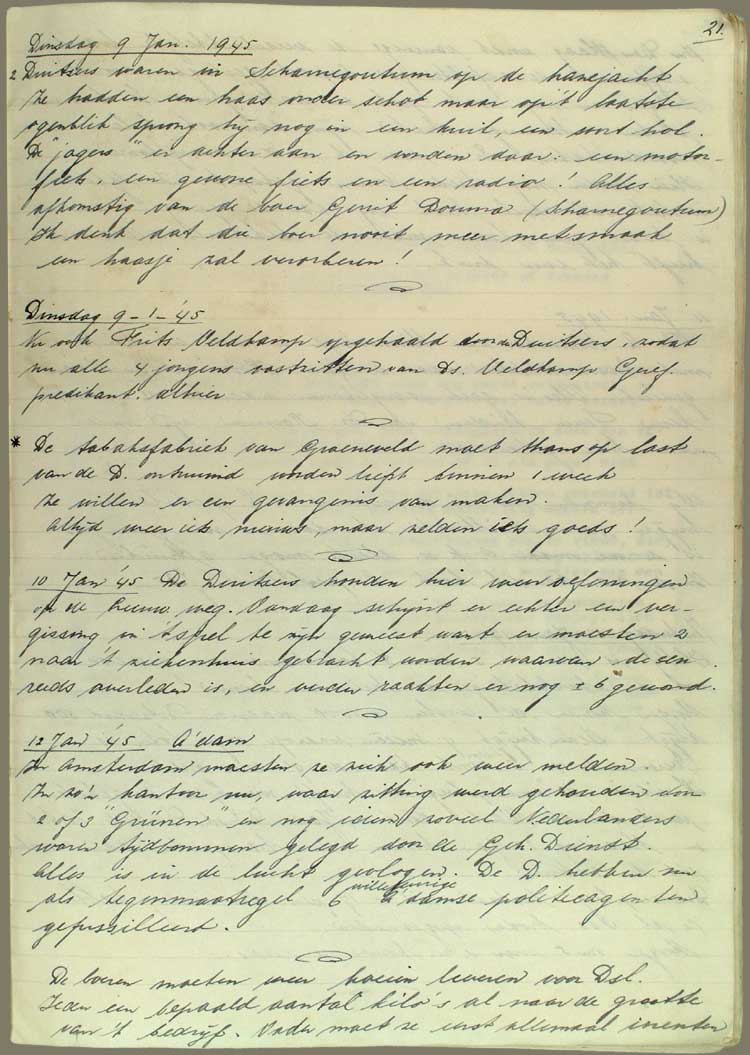 21.
Dinsdag 9 Jan. 1945
2 Duitsers waren in Scharnegoutum op de hazejacht
Ze hadden een haas onder schot maar op 't laatste
ogenblik sprong hij nog in een kuil, een soort hol.
De "jagers" er achter aan en vonden daar: een motor-
fiets, een gewone fiets en een radio! Alles
afkomstig van de boer Gerrit Douma (Scharnegoutum)
Ik denk dat die boer nooit meer met smaak
een haasje zal verorberen!
Dinsdag 9-1-'45
Nu ook Frits Veldkamp opgehaald door de Duitsers, zodat
nu alle 4 jongens vastzitten van Ds. Veldkamp Geref.
predikant. alhier
* De tabaksfabriek van Groeneveld moet thans op last
van de D. ontruimd worden liefst binnen 1 week
Ze willen er een gevangenis van maken.
Altijd weer iets nieuws, maar zelden iets goeds!
10 Jan '45 De Duitsers houden hier weer oefeningen
op de Leeuw. weg. Vandaag schijnt er echter een ver-
gissing in 't spel te zijn geweest want er moesten 2
naar 't ziekenhuis gebracht worden waarvan de een
reeds overleden is, en verder raakten er nog ± 6 gewond.
12 Jan '45 A'dam
In Amsterdam moesten ze zich ook weer melden.
In zo'n kantoor nu, waar zitting werd gehouden door
2 of 3 "Grünen" en nog idem zoveel Nederlanders
waren tijdbommen gelegd door de Geh. Dienst.
Alles is in de lucht gevlogen. De D. hebben nu
als tegenmaatregel 6 willekeurige A'damse politieagenten
gefussilleerd.
De boeren moeten weer koeien leveren voor Dsl.
Ieder een bepaald aantal kilo's al naar de grootte
van 't bedrijf. Vader moet ze eerst allemaal inenten